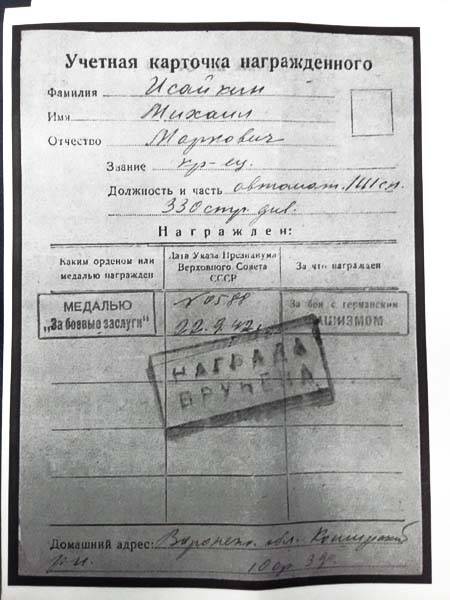 Учетная карточка награжденного
Фамилия Исайкин
Имя Михаил
Отчество Маркович
Звание кр-ец.
Должность и часть автомат. 1111 сп.
330 стр. див.
Награжден:
Каким орденом или медалью награжден
Дата Указа Президиума Верховного Совета СССР
За что награжден
МЕДАЛЬЮ
„За боевые заслуги"
№ 0588
22.9.42г.
За бои с германским
ФАШИЗМОМ
НАГРАДА
ВРУЧЕНА
Домашний адрес: Воронеж. обл.
р-н.